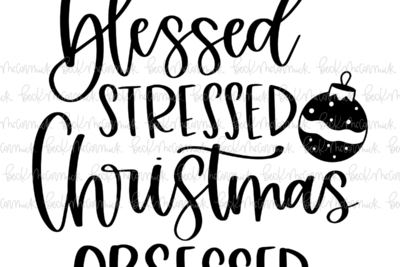 blessed
STRESSED
Christmas
OBSESSED